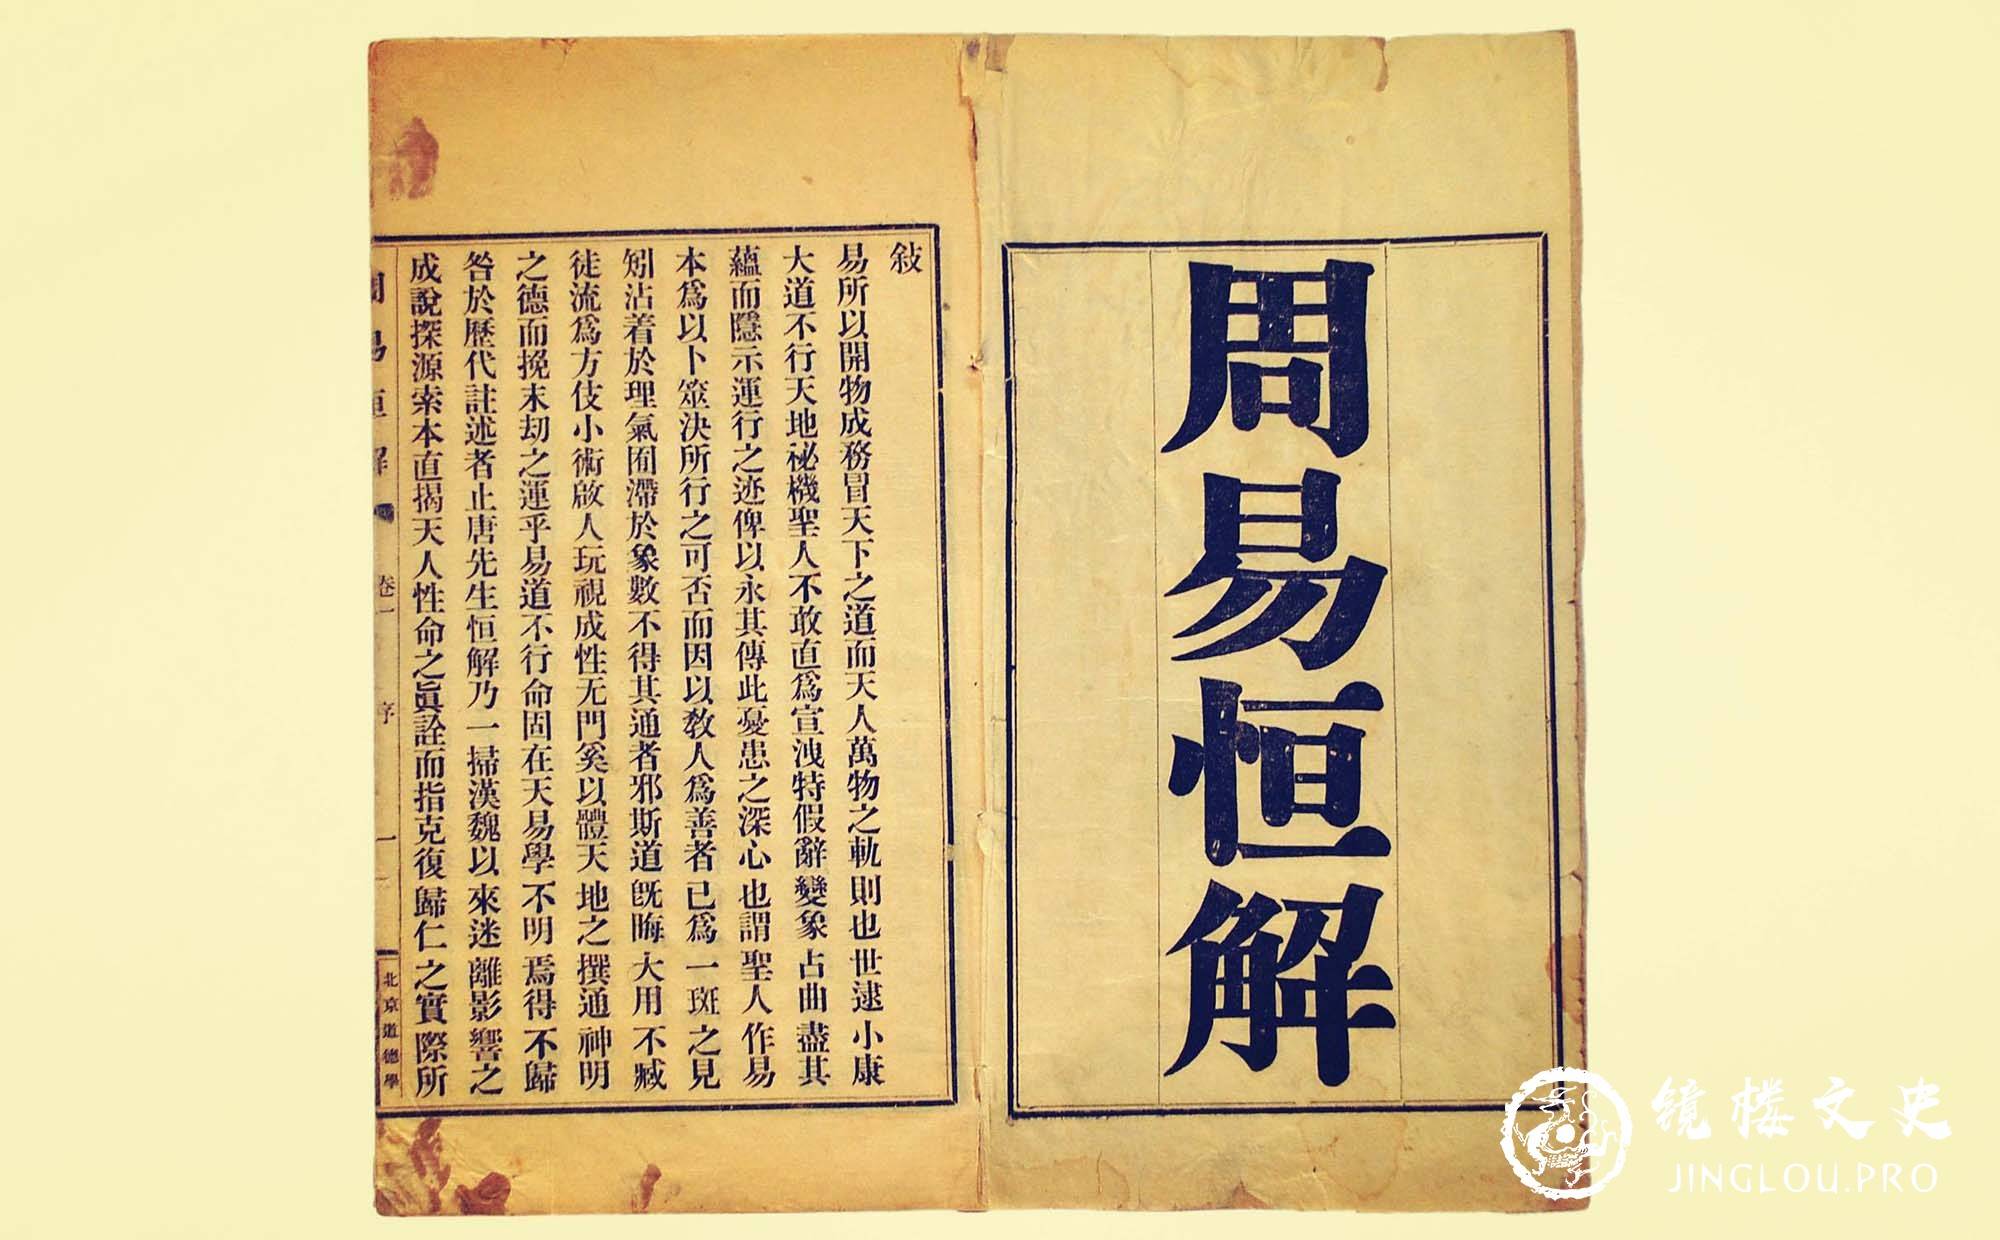 周易恒解
敍
易所以開物成務冒天下之道而天人萬物之軌則也世逮小康
大道不行天地祕機聖人不敢直爲宣洩特假辭變象占曲盡其
蘊而隱示運行之迹俾以永其傳此憂患之深心也謂聖人作易
本爲以卜筮決所行之可否而因以敎人爲善者已爲一斑之見
矧沾着於理氣囿滯於象數不得其通者邪斯道旣晦大用不臧
徒流爲方伎小術啟人玩視成性无門奚以體天地之撰通神明
之德而挽末劫之運乎易道不行命固在天易學不明焉得不歸
咎於歷代註述者止唐先生恒解乃一掃漢魏以來迷離影響之
成說探源索本直揭天人性命之眞詮而指克復歸仁之實際所
周易恒解 卷一 序 一 北京道德學
镜楼文史
JINGLOU.PRO